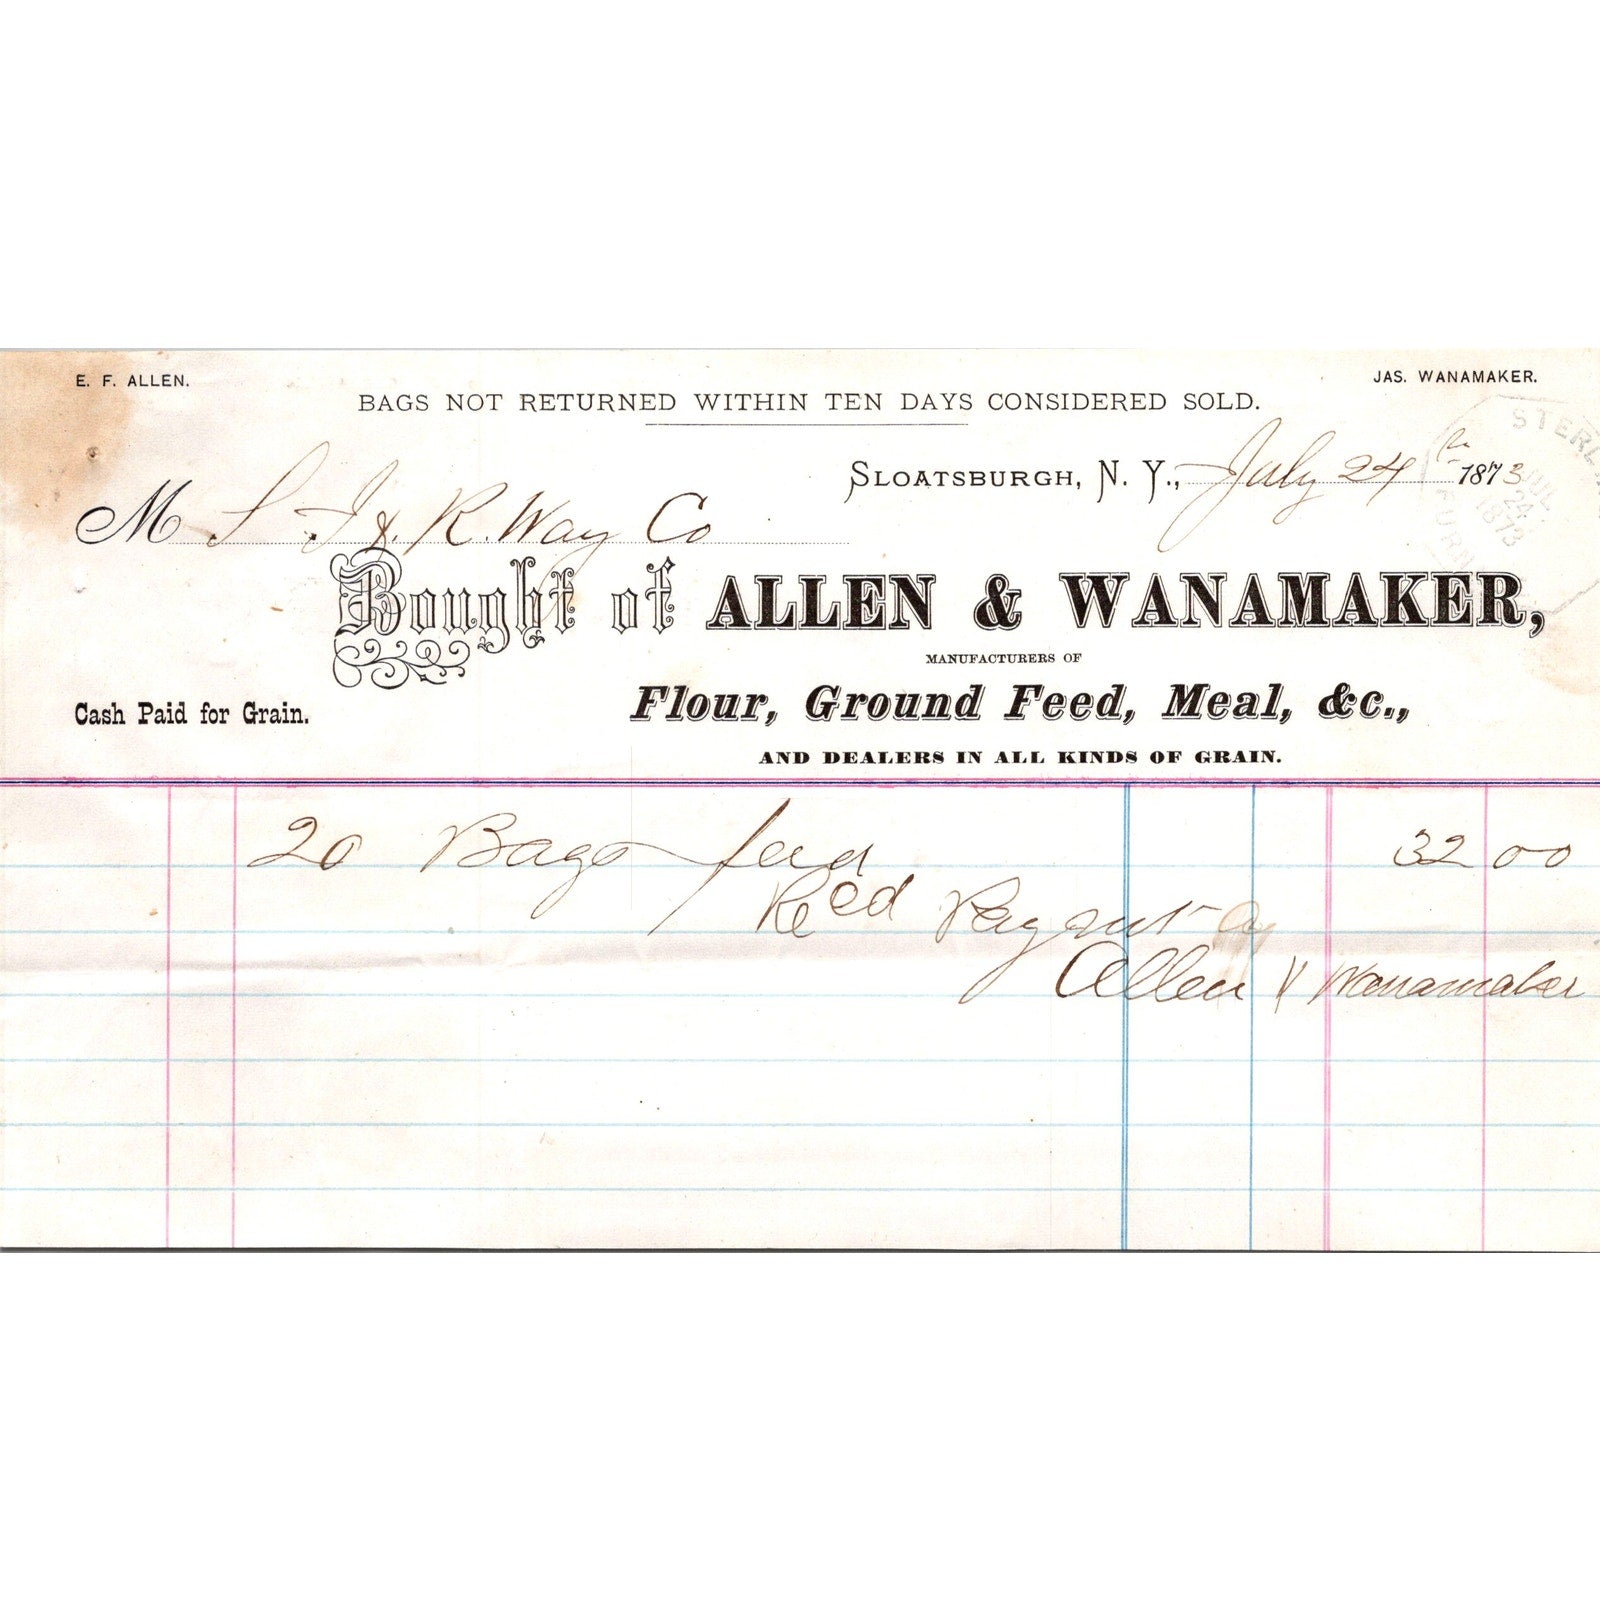 E. F. ALLEN.
JAS. WANAMAKER.
BAGS NOT RETURNED WITHIN TEN DAYS CONSIDERED SOLD.
SLOATSBURGH, N. Y., July 24th 1873
M S. I & R. Way Co
Bought of ALLEN & WANAMAKER,
MANUFACTURERS OF
Cash Paid for Grain.
Flour, Ground Feed, Meal, &c.,
AND DEALERS IN ALL KINDS OF GRAIN.
20 Bags feed 32 00
Recd Payment
Allen & Wanamaker
JUL
24
1873